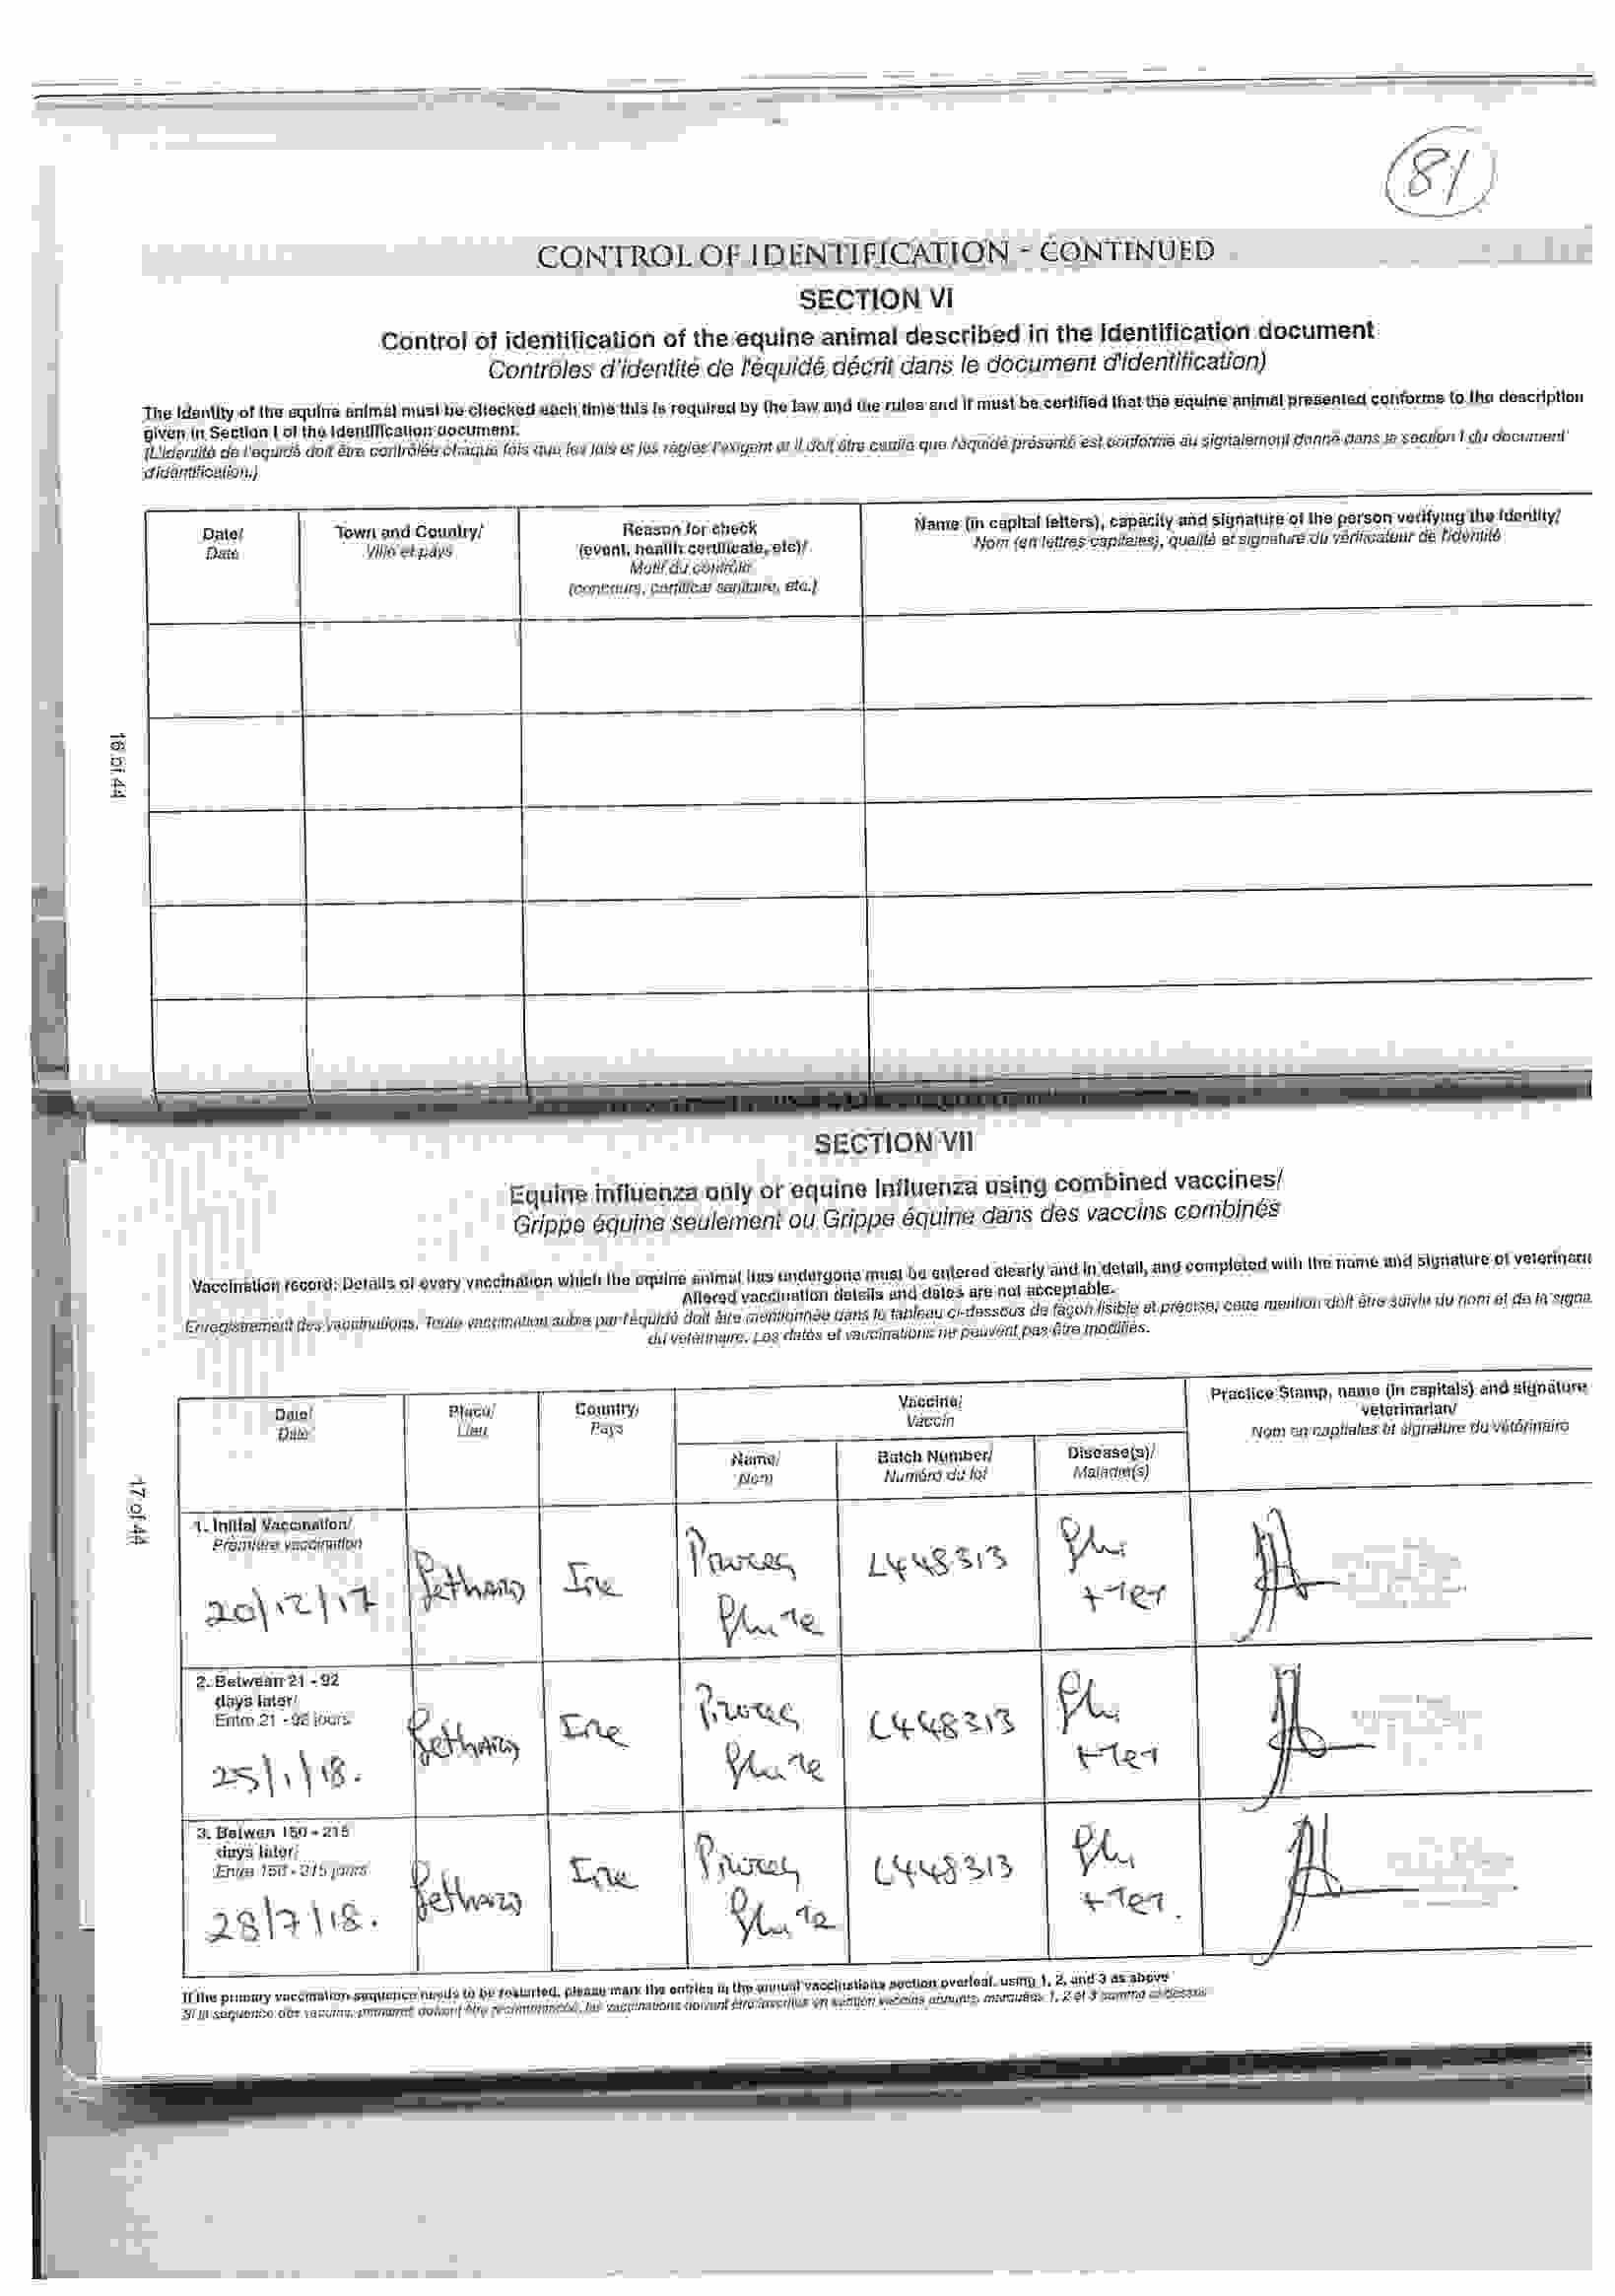 81
CONTROL OF IDENTIFICATION - CONTINUED
SECTION VI
Control of identification of the equine animal described in the Identification document
Contrôles d'identité de l'équidé décrit dans le document d'identification)
The Identity of the equine animal must be checked each time this is required by the law and the rules and it must be certified that the equine animal presented conforms to the description
given in Section I of the Identification document.
(L'identité de l'équidé doit être contrôlée chaque fois que les lois et les règles l'exigent et il doit être certifié que l'équidé présenté est conforme au signalement donné dans le section I du document
d'identification.)
Date/
Date
Town and Country/
Ville et pays
Reason for check
(event, health certificate, etc)/
Motif du contrôle
(concours, certificat sanitaire, etc.)
Name (in capital letters), capacity and signature of the person verifying the Identity/
Nom (en lettres capitales), qualité et signature du vérificateur de l'identité
16 of 44
SECTION VII
Equine influenza only or equine Influenza using combined vaccines/
Grippe équine seulement ou Grippe équine dans des vaccins combinés
Vaccination record: Details of every vaccination which the equine animal has undergone must be entered clearly and in detail, and completed with the name and signature of veterinari
Altered vaccination details and dates are not acceptable.
Enregistrement des vaccinations. Toute vaccination subie par l'équidé doit être mentionnée dans le tableau ci-dessous de façon lisible et précise, cette mention doit être suivie du nom et de la signa
du vétérinaire. Les dates et vaccinations ne peuvent pas être modifiés.
Date/
Date
Place/
Lieu
Country/
Pays
Vaccine/
Vaccin
Name/
Nom
Batch Number/
Numéro du lot
Disease(s)/
Maladie(s)
Practice Stamp, name (in capitals) and signature
veterinarian/
Nom en capitales et signature du vétérinaire
17 of 44
1. Initial Vaccination/
Première vaccination
20/12/17
Fethard
Ire
Proteq
Flu Te
L448313
Flu
+ Tet
2. Between 21 - 92
days later/
Entre 21 - 92 jours
25/1/18.
Fethard
Ire
Proteq
Flu Te
L448313
Flu
+ Tet
3. Betwen 150 - 215
days later/
Entre 150 - 215 jours
28/7/18.
Fethard
Ire
Proteq
Flu Te
L448313
Flu
+ Tet.
If the primary vaccination sequence needs to be restarted, please mark the entries in the annual vaccinations section overleaf, using 1, 2, and 3 as above